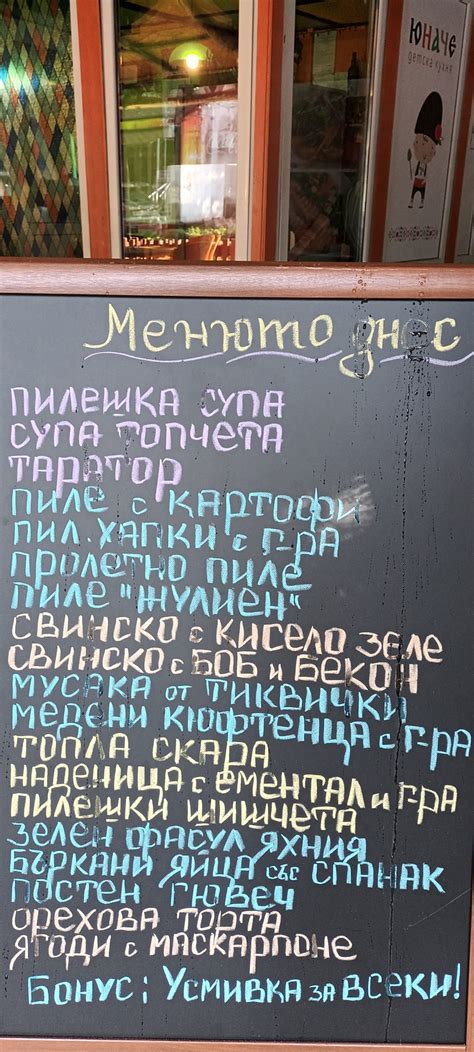 ЮНАЧЕ
детска кухня
Менюто днес
ПИЛЕШКА СУПА
СУПА ТОПЧЕТА
ТАРАТОР
ПИЛЕ с КАРТОФИ
ПИЛ. ХАПКИ с Г-РА
ПРОЛЕТНО ПИЛЕ
ПИЛЕ "ЖУЛИЕН"
СВИНСКО с КИСЕЛО ЗЕЛЕ
СВИНСКО с БОБ и БЕКОН
МУСАКА от ТИКВИЧКИ
МЕДЕНИ КЮФТЕНЦА с Г-РА
ТОПЛА СКАРА
НАДЕНИЦА с ЕМЕНТАЛ и Г-РА
ПИЛЕШКИ ШИШЧЕТА
ЗЕЛЕН ФАСУЛ ЯХНИЯ
БЪРКАНИ ЯЙЦА със СПАНАК
ПОСТЕН ГЮВЕЧ
ОРЕХОВА ТОРТА
ЯГОДИ с МАСКАРПОНЕ
БОНУС: УСМИВКА ЗА ВСЕКИ!